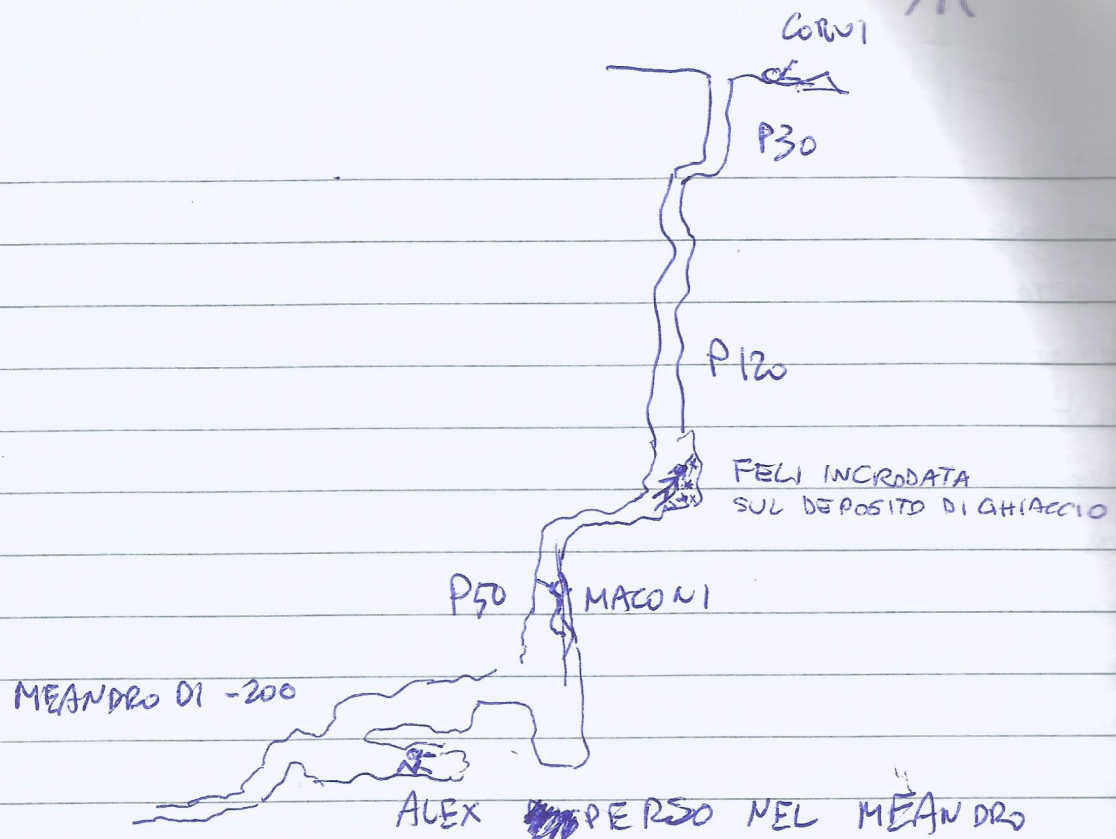 CORVI
P30
P120
FELI INCRODATA
SUL DEPOSITO DI GHIACCIO
P50
MACONI
MEANDRO DI -200
ALEX PERSO NEL MEANDRO